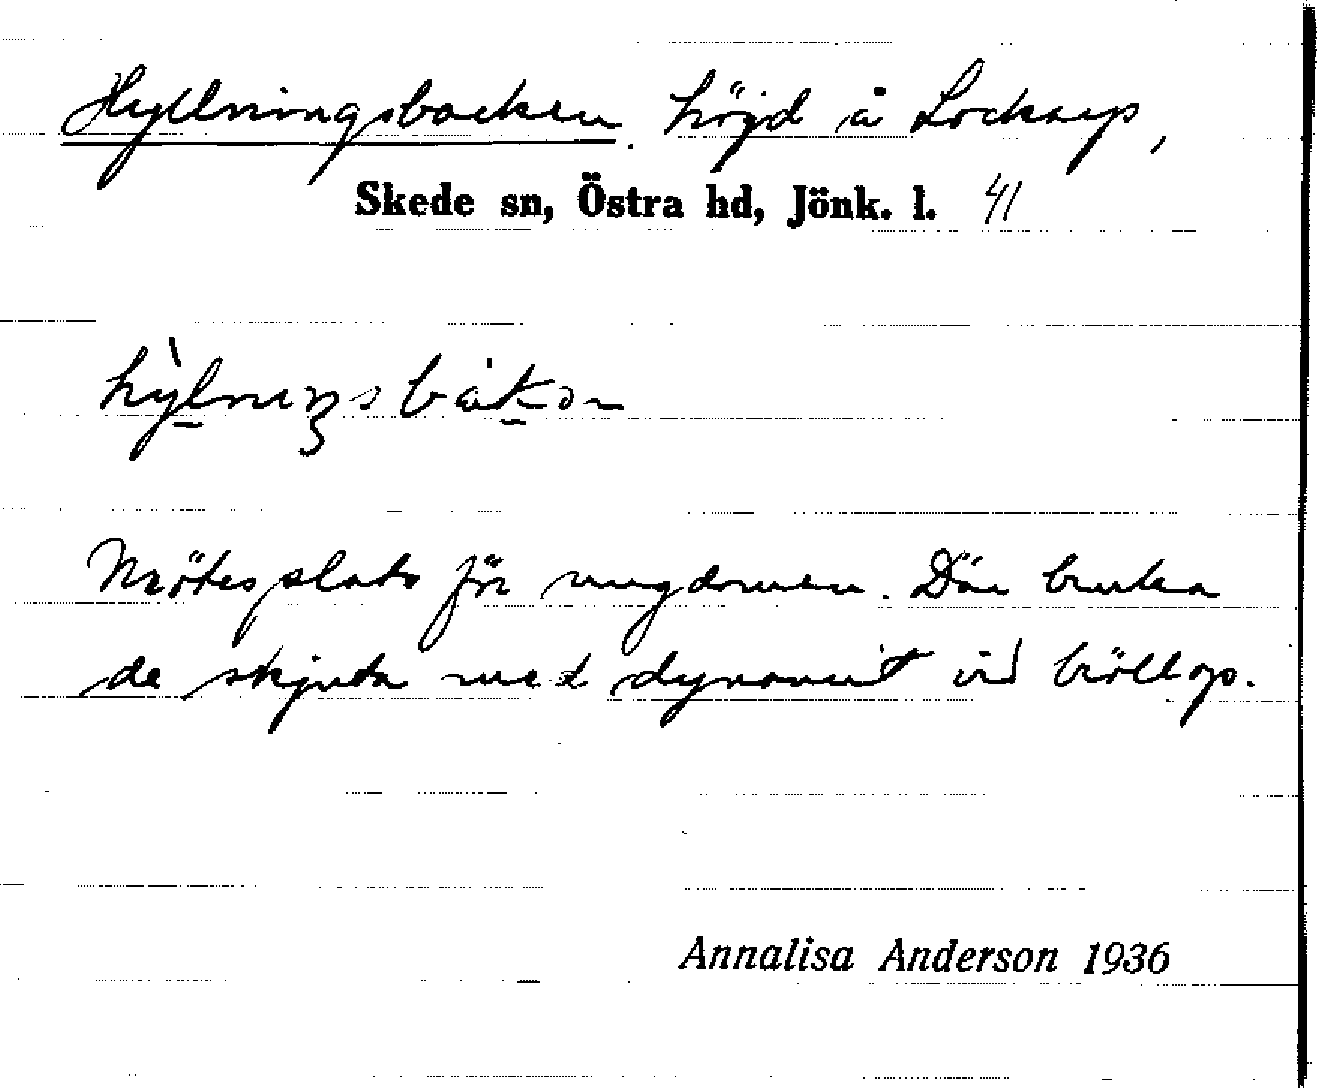 Hyllningsbacken. höjd å Lockarp,
Skede sn, Östra hd, Jönk. l. 41
hỳlnıŋsbàkən
Mötesplats för ungdomen. Där bruka
de skjuta med dynamit vid bröllop.
Annalisa Anderson 1936